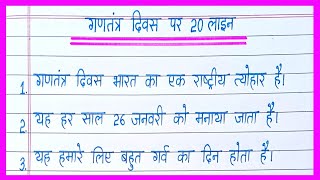 गणतंत्र दिवस पर 20 लाइन
1. गणतंत्र दिवस भारत का एक राष्ट्रीय त्योहार है।
2. यह हर साल 26 जनवरी को मनाया जाता है।
3. यह हमारे लिए बहुत गर्व का दिन होता है।